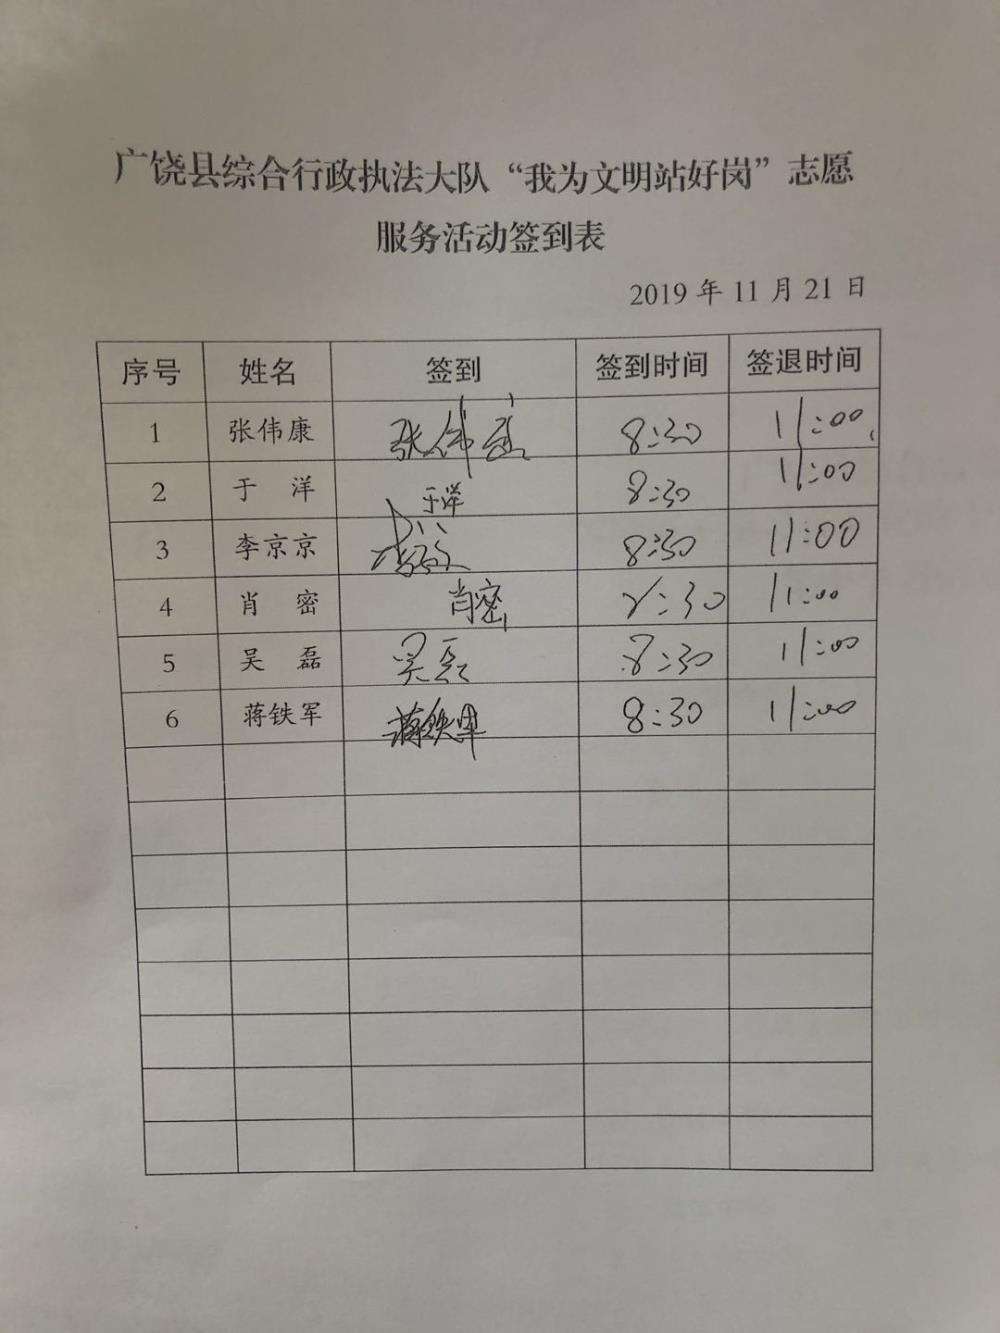 广饶县综合行政执法大队“我为文明站好岗”志愿
服务活动签到表
2019 年 11 月 21 日
序号 姓名 签到 签到时间 签退时间
1 张伟康 张伟康 8:30 11:00
2 于 洋 于洋 8:30 11:00
3 李京京 8:30 11:00
4 肖 密 肖密 8:30 11:00
5 吴 磊 吴磊 8:30 11:00
6 蒋铁军 蒋铁军 8:30 11:00